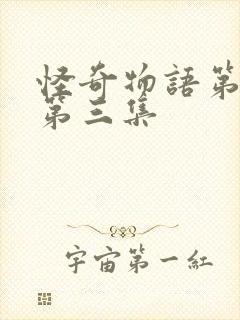 怪奇物語第
第三集
宇宙第一紅